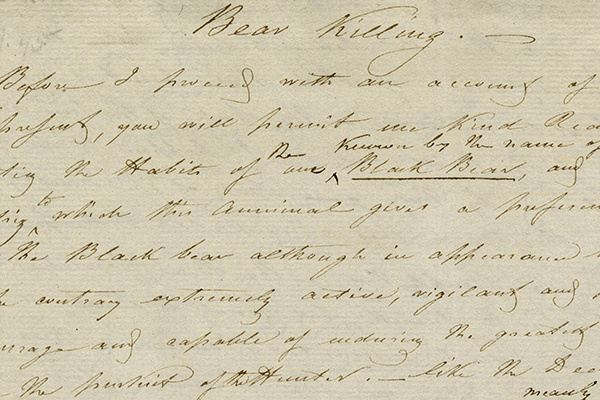 Bear Killing. —
Before I proceed with an account of
present, you will permit me Kind Rea
the Known by the name of
ting the Habits of our Black Bear, and
to
which this Annimal gives a preferen
The Black bear although in appearance
contrary extremely active, vigilant and
urage and capable of enduring the greatest
the pursuit of the Hunter. — like the Dee
meanly